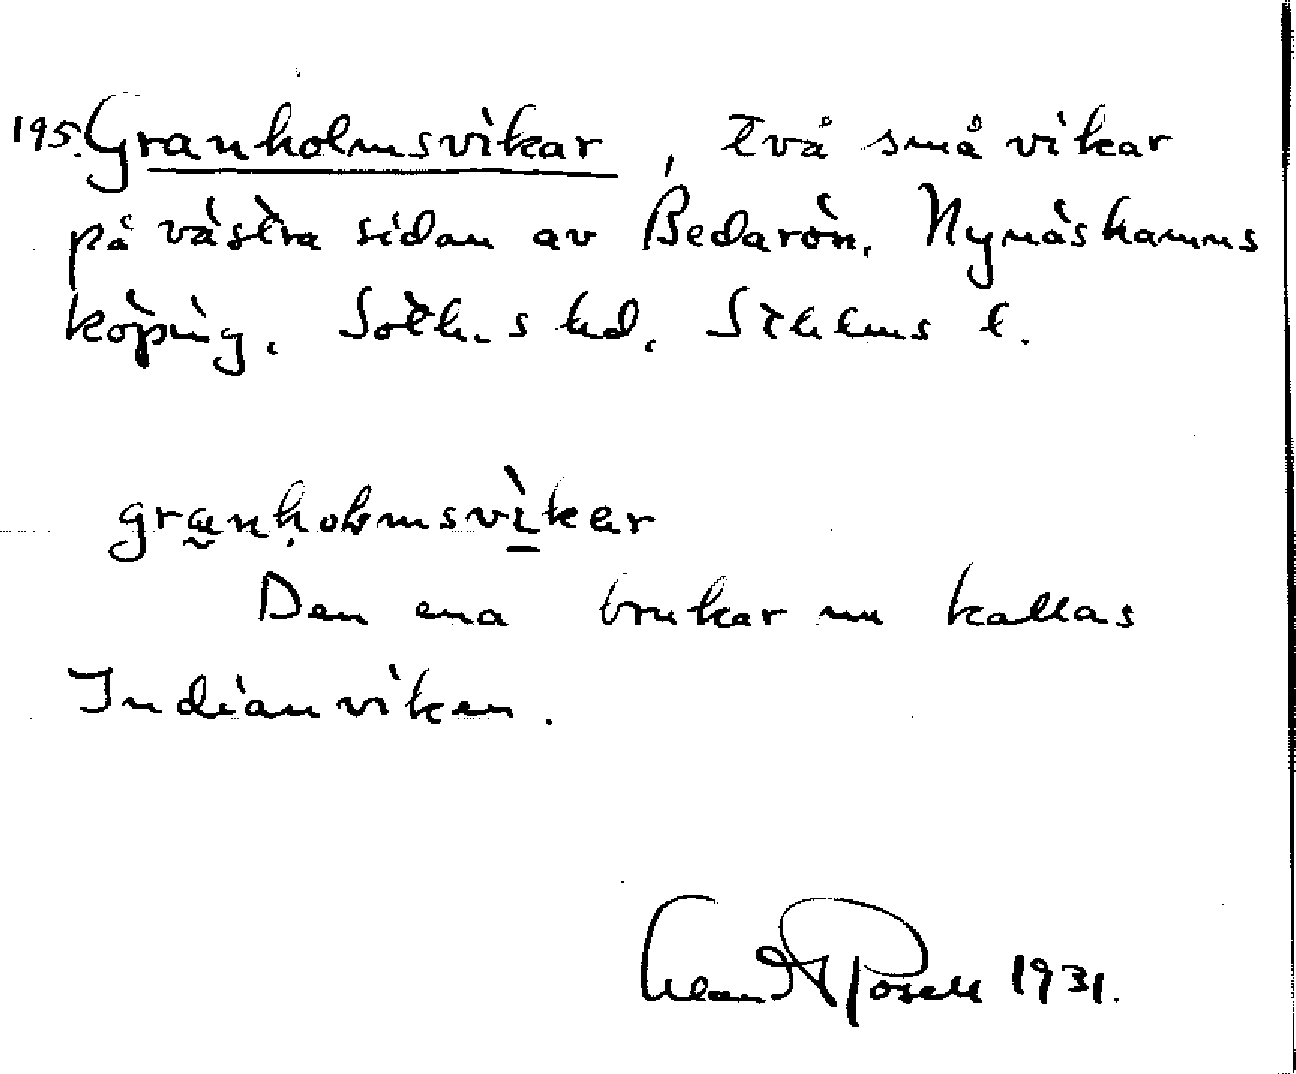 195. Granholmsvikar, två små vikar
på västra sidan av Bedarön. Nynäshamns
köping. Soth.s hd. Sthlms l.
granholmsvìkar
Den ena brukar nu kallas
Indianviken.
1931.